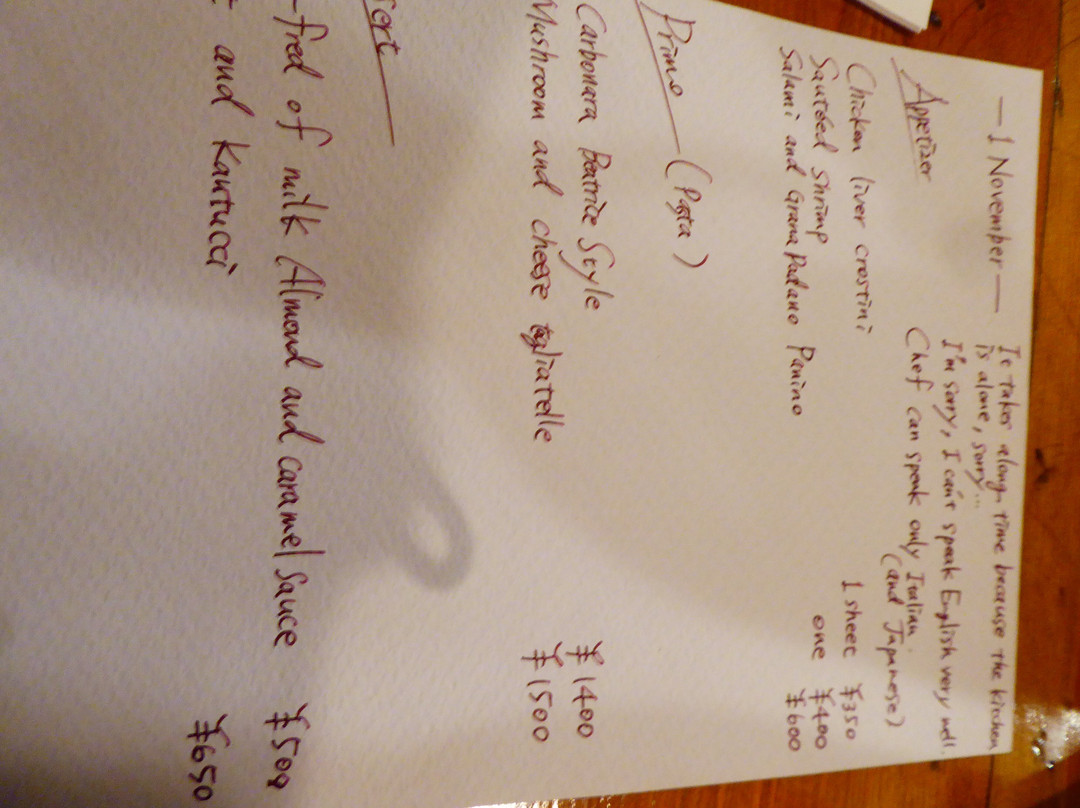 — 1 November —
It takes along time because the kitchen
is alone, sorry...
I'm sorry, I can't speak English very well.
Chef can speak only Italian
(and Japanese)
Appetizer
Chicken liver crostini 1 sheet ¥350
Sautéed Shrimp one ¥400
Salami and Grana Padano Panino ¥600
Primo (Pasta)
Carbonara Beatrice Style ¥1400
Mushroom and cheese tagliatelle ¥1500
sert
-fred of milk Almond and caramel Sauce ¥500
and Kantucci ¥650